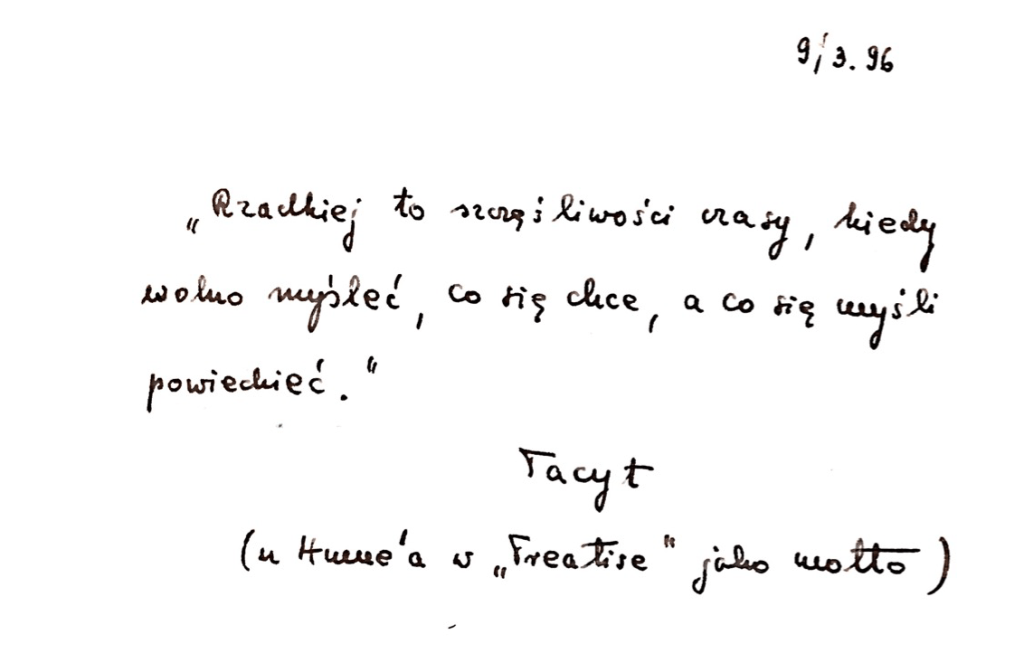 9/3.96
„Rzadkiej to szczęśliwości czasy, kiedy
wolno myśleć, co się chce, a co się myśli
powiedzieć."
Tacyt
(u Hume'a w „Treatise" jako motto)